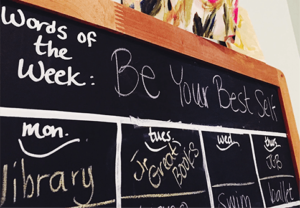 Words of
the
Week:
Be Your Best Self
mon.
tues.
wed.
thurs.
library
Jr Great
Books
swim
ballet